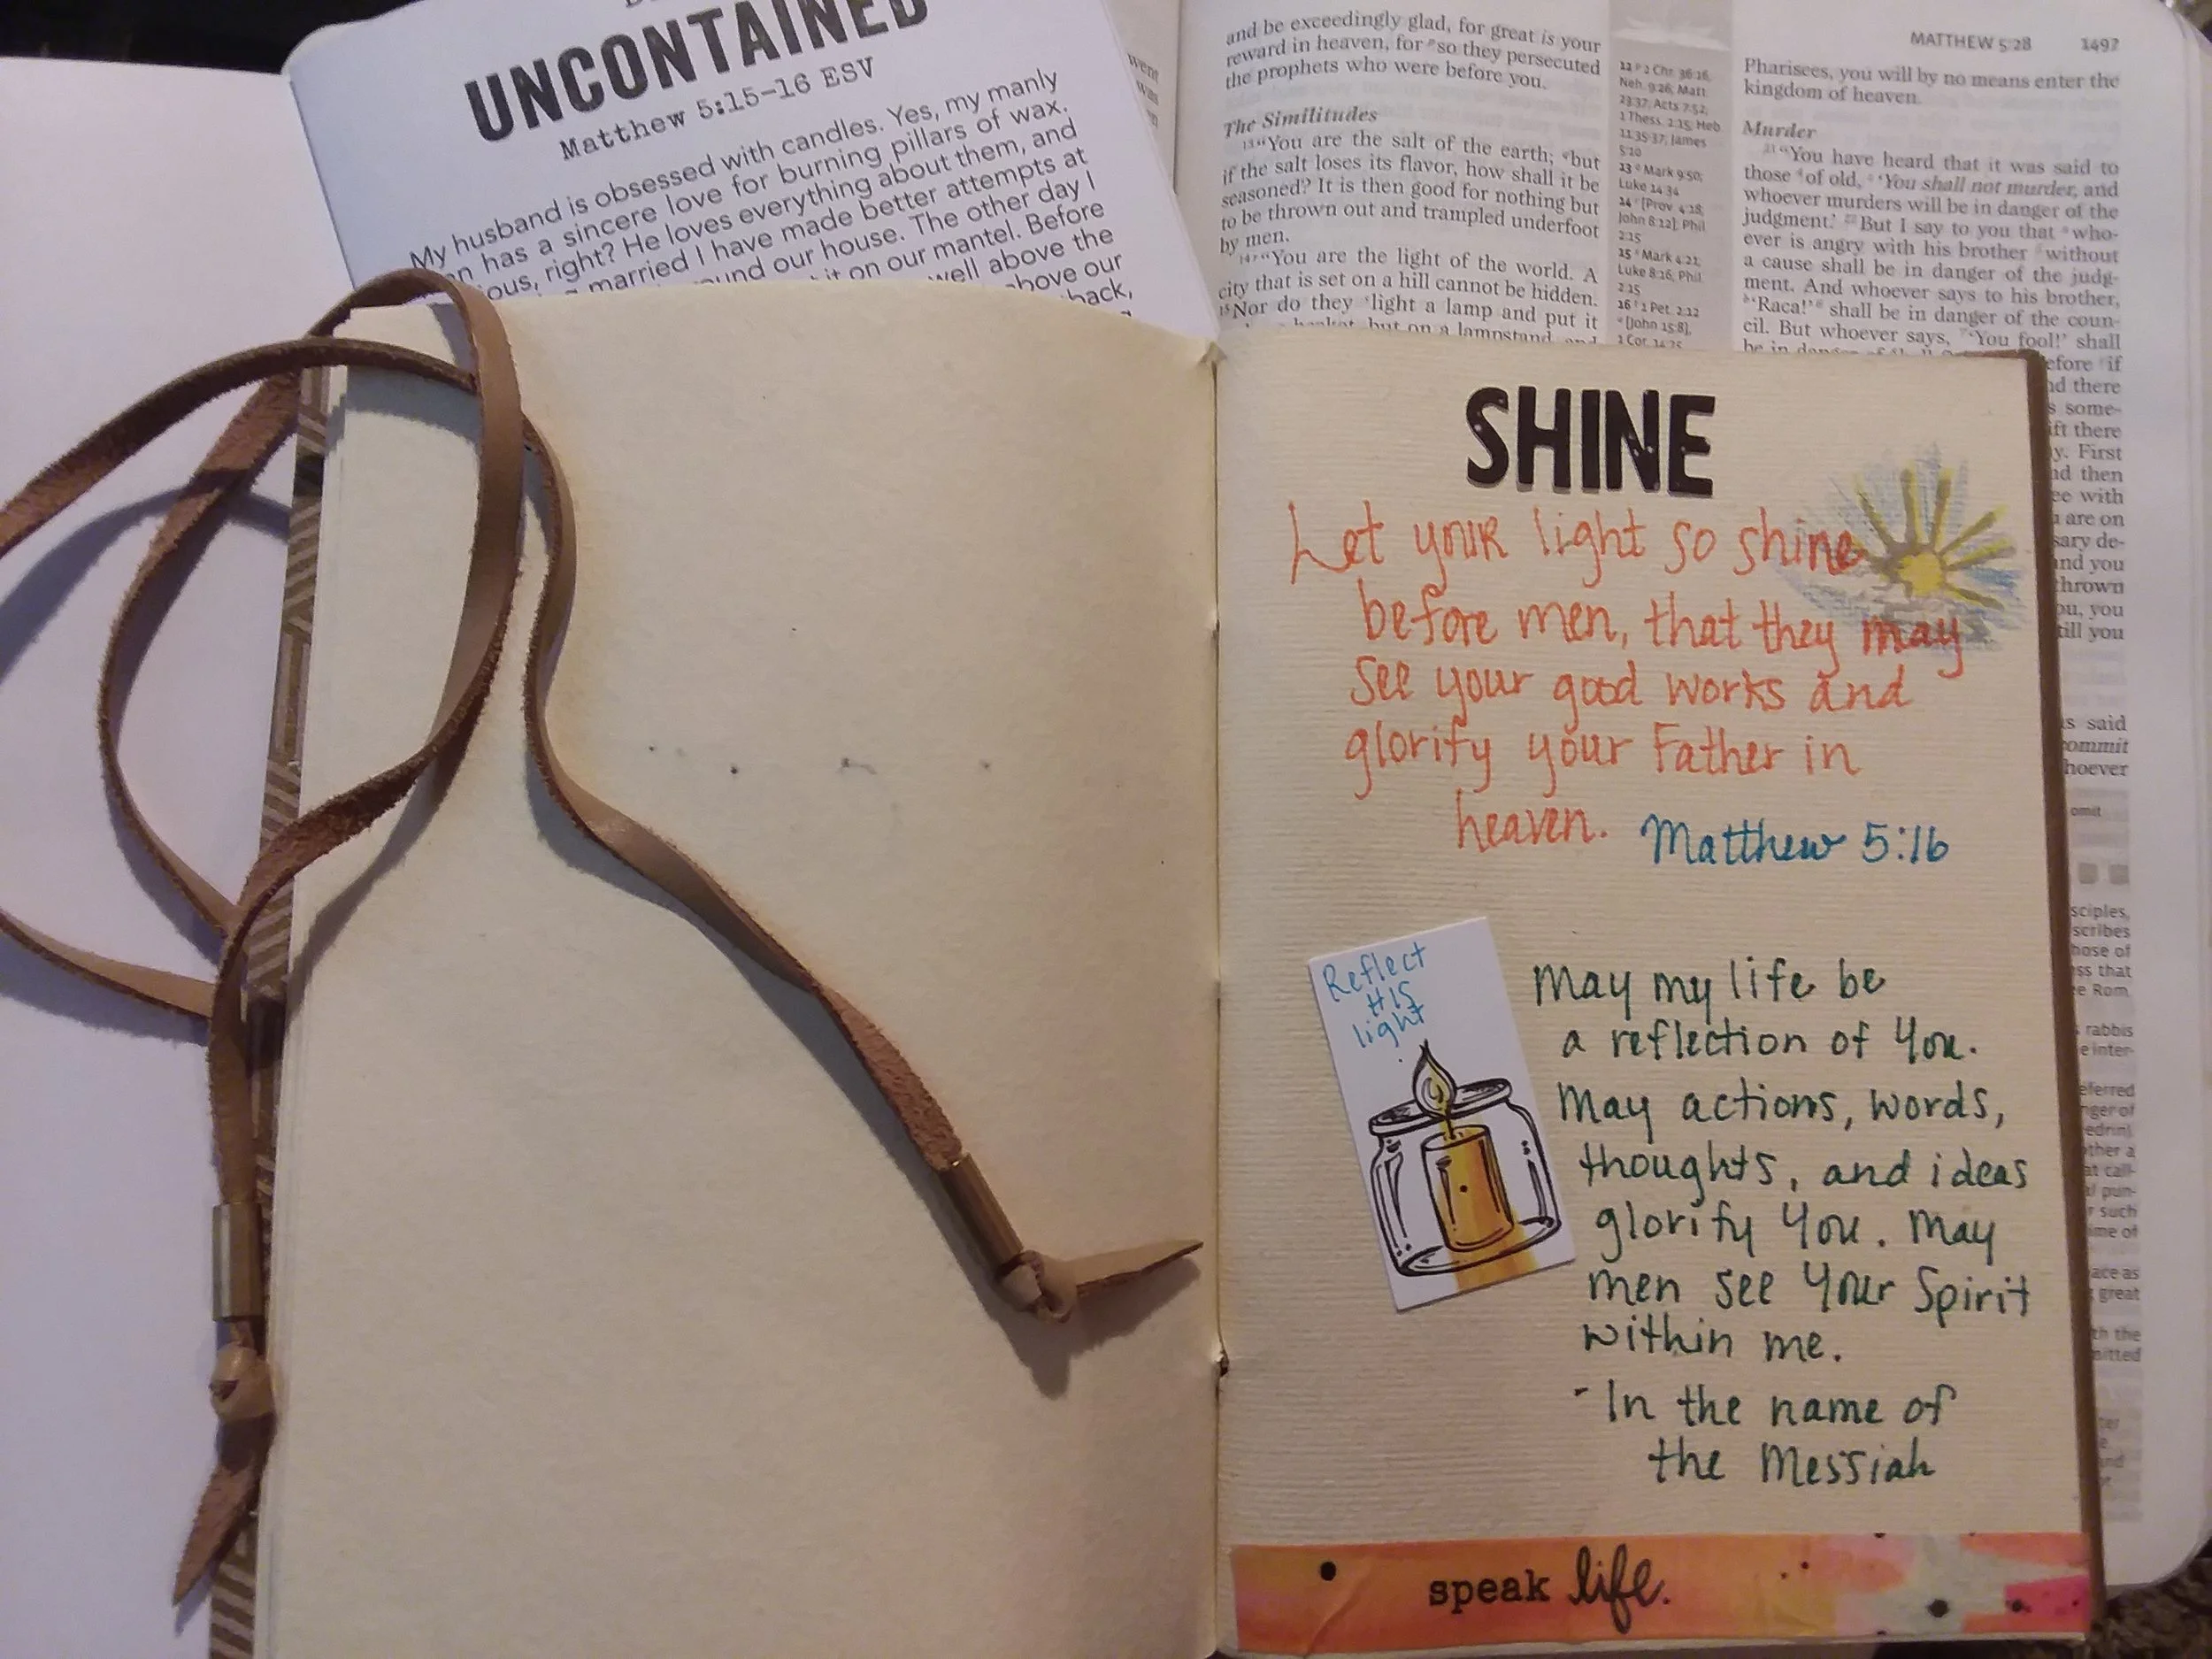 UNCONTAINED
Matthew 5:15-16 ESV
My husband is obsessed with candles. Yes, my manly
has a sincere love for burning pillars of wax.
right? He loves everything about them, and
married I have made better attempts at
our house. The other day I
it on our mantel. Before
well above the
above our
back,
went
was
and be exceedingly glad, for great is your
reward in heaven, for so they persecuted
the prophets who were before you.
The Similitudes
13 "You are the salt of the earth; but
if the salt loses its flavor, how shall it be
seasoned? It is then good for nothing but
to be thrown out and trampled underfoot
by men.
14 "You are the light of the world. A
city that is set on a hill cannot be hidden.
15 Nor do they light a lamp and put it
basket, but on a lampstand, and
12 2 Chr. 36:16;
Neh. 9:26; Matt.
23:37; Acts 7:52;
1 Thess. 2:15; Heb.
11:35-37; James
5:10
13 Mark 9:50;
Luke 14:34
14 [Prov. 4:18;
John 8:12]; Phil.
2:15
15 Mark 4:21;
Luke 8:16; Phil.
2:15
16 1 Pet. 2:12
[John 15:8];
1 Cor. 14:25
MATTHEW 5:28 1497
Pharisees, you will by no means enter the
kingdom of heaven.
Murder
21 "You have heard that it was said to
those of old, 'You shall not murder, and
whoever murders will be in danger of the
judgment.' 22 But I say to you that who-
ever is angry with his brother without
a cause shall be in danger of the judg-
ment. And whoever says to his brother,
'Raca!' shall be in danger of the coun-
cil. But whoever says, 'You fool!' shall
be in danger of
if
there
some-
there
First
then
with
are on
de-
and you
thrown
you, you
till you
said
commit
whoever
omit
SHINE
Let your light so shine
before men, that they may
see your good works and
glorify your Father in
heaven. Matthew 5:16
Reflect
HIS
light
May my life be
a reflection of You.
May actions, words,
thoughts, and ideas
glorify You. May
men see Your Spirit
within me.
- In the name of
the Messiah
speak life.